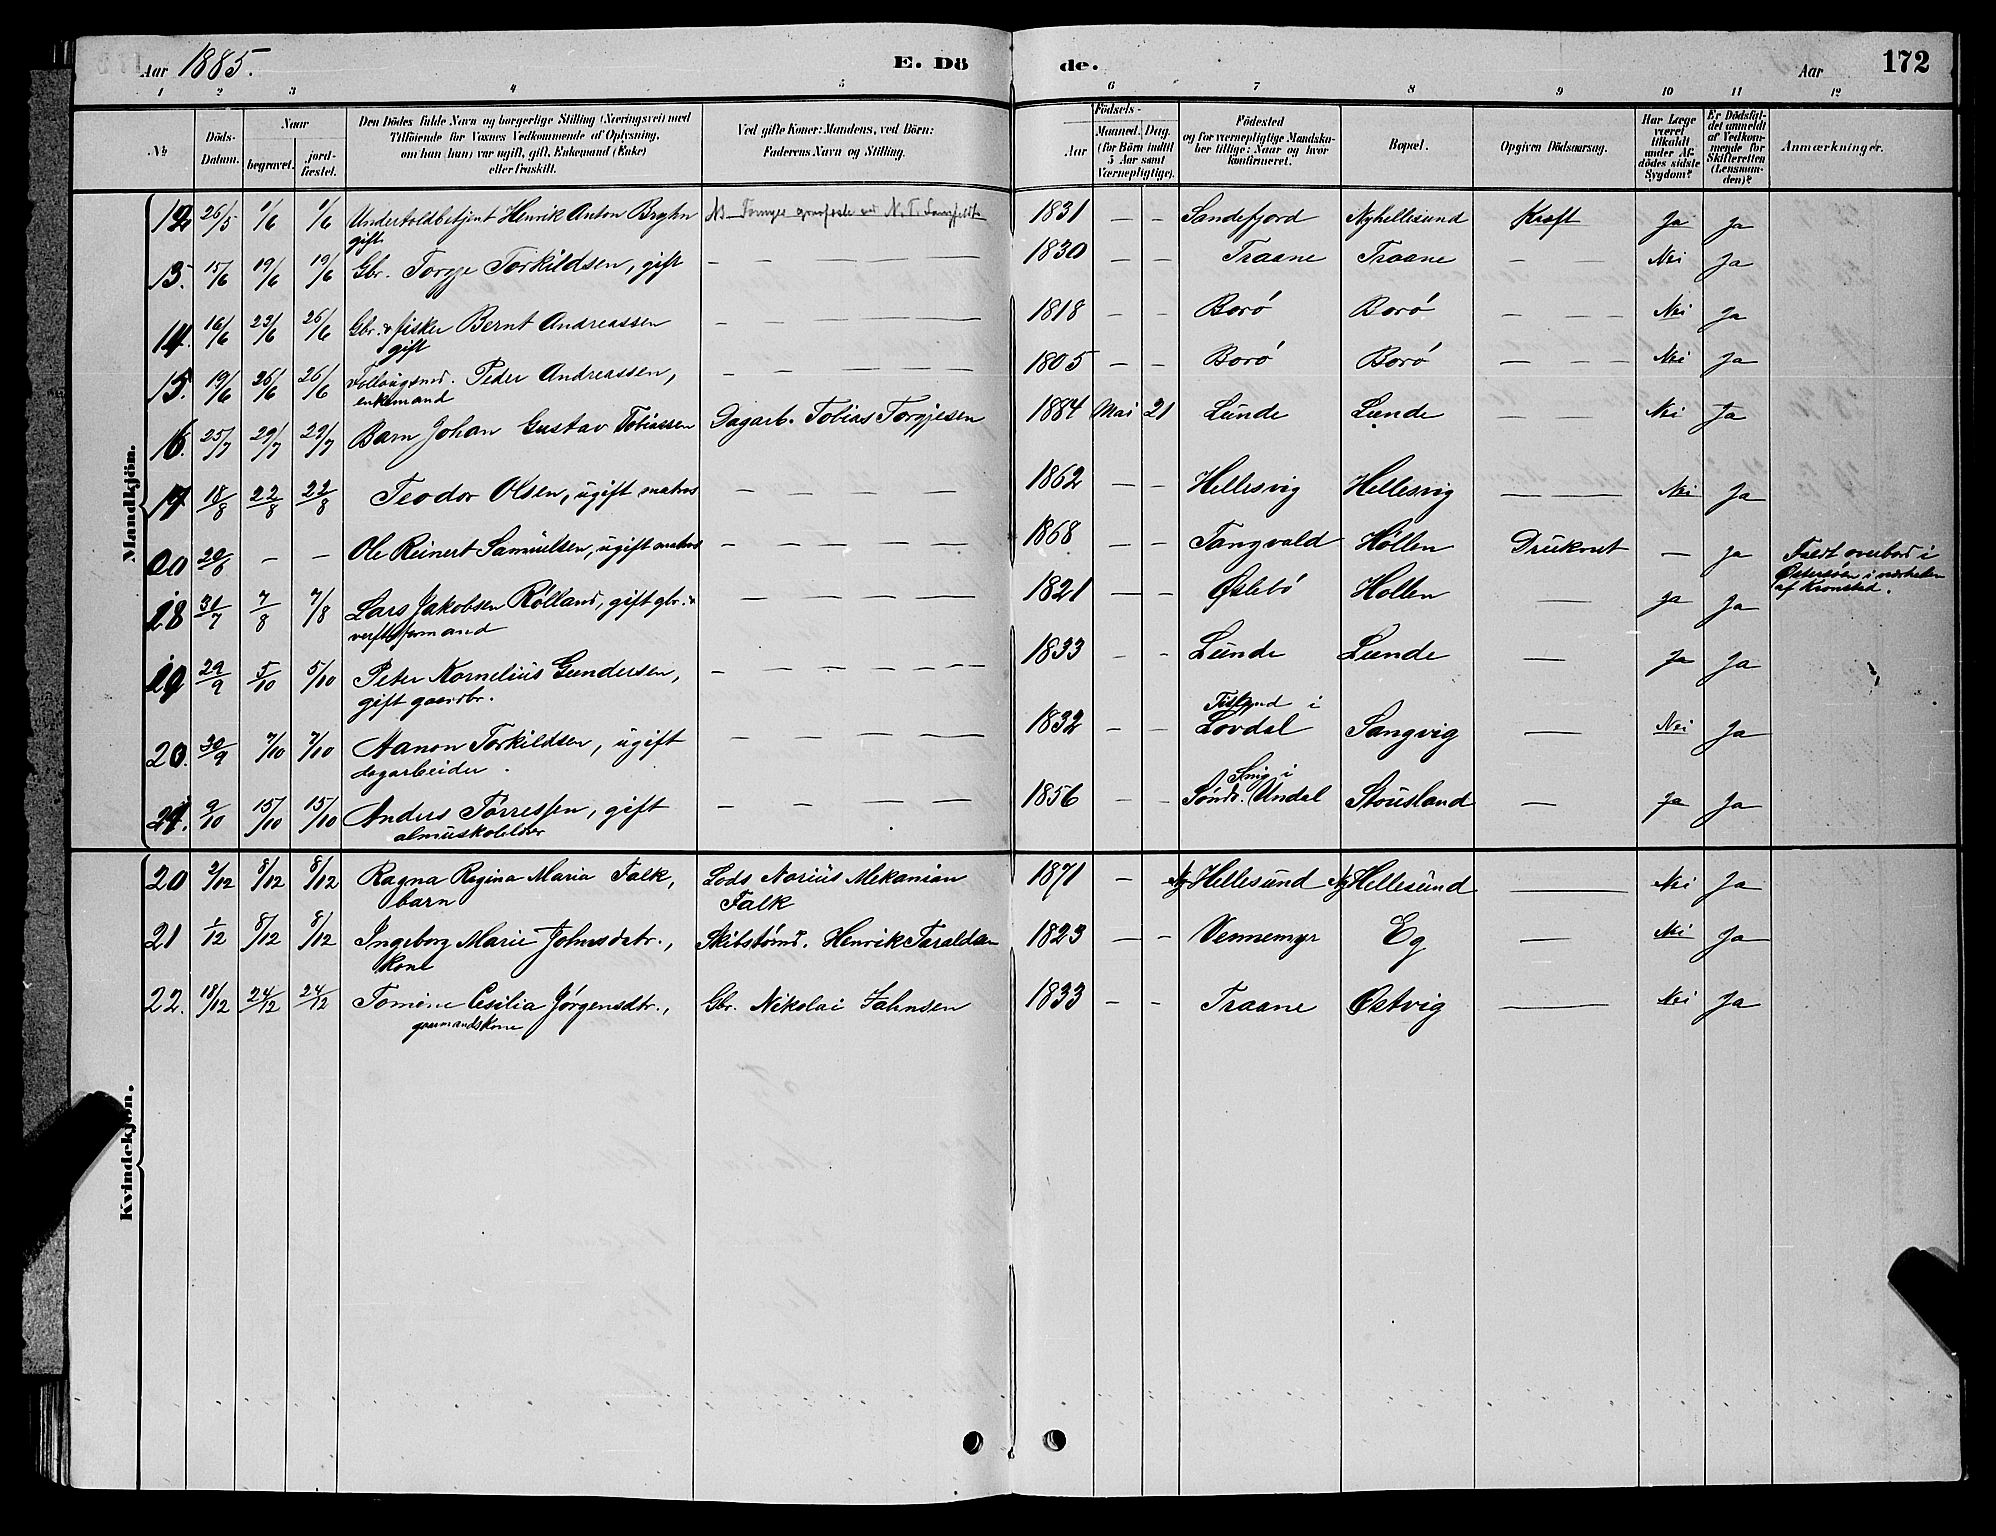 Aar 1885. E. Dö de. Aar 172
1 2 3 4 5 6 7 8 9 10 11 12
№ Döds-Datum. Naar begravet. jord-fæstet. Den Dödes fulde Navn og borgerlige Stilling (Næringsvei) med Tilföiende for Voxnes Vedkommende af Oplysning, om han (hun) var ugift, gift, Enkemand (Enke) eller fraskilt. Ved gifte Koner: Mandens, ved Börn: Faderens Navn og Stilling. Födsels- Aar Maaned. Dag. (for Börn indtil 5 Aar samt Værnepligtige). Födested og for værnepligtige Mandskaber tillige: Naar og hvor konfirmeret. Bopæl. Opgiven Dödsaarsag. Har Læge været tilkaldt under Afdödes sidste Sygdom? Er Dödsfaldet anmeldt af Vedkommende for Skifteretten (Lensmanden)? Anmærkninger.
Mandkjön.
12 26/5 1/6 1/6 Undertoldbetjent Henrik Anton 1831 — — Sandefjord Nyhellesund Kræft Ja Ja
gift
13. 15/6 19/6 19/6 Gbr. Torgje Torkildsen, gift — — — — — 1830 — — Traane Traane — — Nei Ja
14. 16/6 23/6 26/6 Gbr. & fisker Bernt Andreassen — — — — — 1818 — — Borö Borö — — — Nei Ja
gift
15. 19/6 26/6 26/6 Peder Andreassen, — — — — — 1805 — — Borö Borö — — — Nei Ja
enkemand
16. 25/7 29/7 29/7 Barn Johan Gustav Tobiassen Dagarb. Tobias Torgjesen 1884 Mai 21 Lunde Lunde — — Nei Ja
17 18/8 22/8 22/8 Teodor Olsen, ugift matros — — — — — 1862 — — Hellesvig Hellesvig — — — Nei Ja
00 20/6 — — Ole Reinert Samuelsen, ugift matros — — — — — 1868 — — Tangvald Höllen Druknet — Ja Faldt overbord i
Östersöen i nærheden
af Kronsted.
18 31/7 7/8 7/8 Lars Jakobsen Rölland, gift gbr. & — — — — — 1821 — — Öslebö Höllen — Ja Ja
verftsformand
19 29/9 5/10 5/10 Peter Kornelius Gundersen, — — — — — 1833 — — Lunde Lunde — Ja Ja
gift gaardbr.
20. 30/9 7/10 7/10 Aanon Torkildsen, ugift — — — — — 1832 — — i Lovdal Sangvig — Nei Ja
dagarbeider.
21. 9/10 15/10 15/10 Anders Törressen, gift — — — — — 1856 — — i Sönd. Undal Stousland — Ja Ja
almuskolelær
Kvindekjön.
20 2/12 8/12 8/12 Ragna Regina Maria Falk, Lods Narius Mekanian 1871 — Ny Hellesund Ny Hellesund — Nei Ja
barn Falk
21 1/12 8/12 8/12 Ingeborg Marie Johnsdatr., Skibstömr. Henrik Taraldsen 1823 — — Vennemyr Eg — Nei Ja
kone
22. 18/12 24/12 24/12 Tomine Cesilia Jörgensdtr., Gbr. Nikolai Jahnsen 1833 — — Traane Östvig — Nei Ja
gaarmandskone